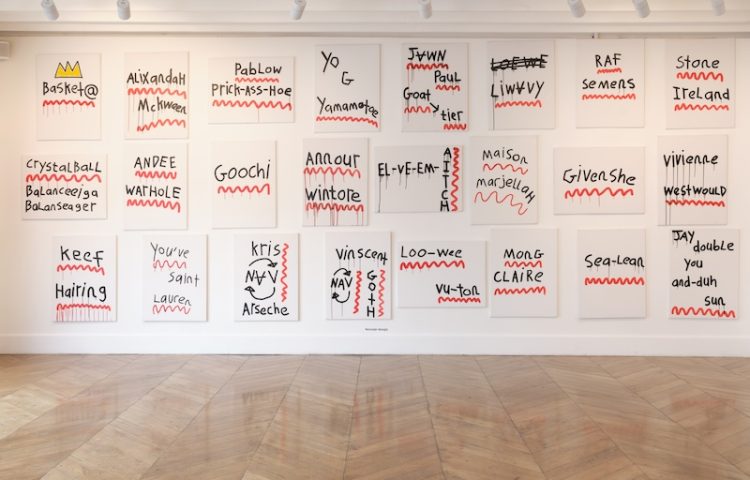 Basket@
AlixandaH
McKween
PabLow
Prick-Ass-Hoe
Yo
G
Yamamotoe
JAWN
Paul
Goat
tier
LOEWE
LiWVVY
RAF
Semens
Stone
Ireland
CrystalBall
Balanceejga
Balanseager
ANDEE
WARHOLE
Goochi
ANNOUR
wintore
EL-VE-EM-
AITCH
maison
marjellaH
GivenShe
vivienne
westwould
Keef
Hairing
You've
Saint
Lauren
kris
NAV
Arseche
vinscent
NAV
GOTH
Loo-wee
vu-ton
MONG
CLAIRE
Sea-Lean
JAY
double
you
and-duh
sun